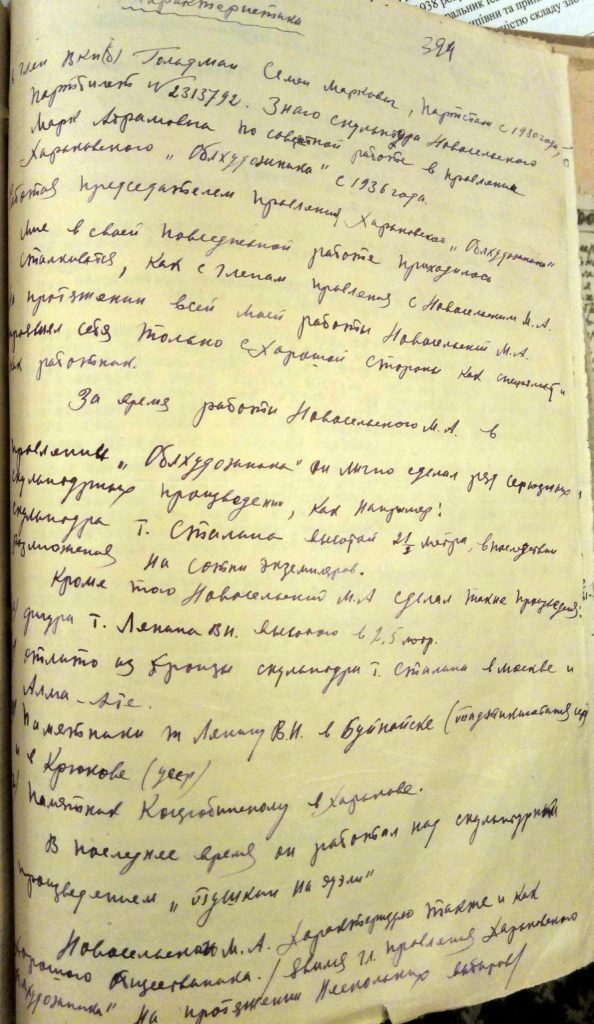 Характеристика
394
член ВКП(б) Гольдман Семен Маркович, партстаж с 1930 года,
партбилет № 2313792. Знаю скульптора Новосельского
Марк Абрамовича по совместной работе в правлении
Харьковского „Облхудожника" с 1936 года.
Работая председателем правления Харьковского „Облхудожника"
мне в своей повседневной работе приходилось
сталкиватся, как с членам правления с Новосельским М.А.
на протяжении всей моей работы Новосельский М.А.
проявил себя только с харошой стороны как специалист и
как работник.
За время работы Новосельского М.А. в
правлении „Облхудожника" он лично сделал ряд серьозных
скульптурных произведении, как например:
скульптура т. Сталина высотой 2½ метра, впоследствии
размложения на сотни экземпляров.
Кроме того Новосельский М.А сделал такие произведения:
фигура т. Ленина В.И. высотою в 2,5 метр.
отлито из бронзы скульптура т. Сталина в Москве и
Алма-Ате.
Памятники т Ленину В.И. в
и в Крюкове (усср)
Памятник Коцюбинскому в Харькове.
В последнее время он работал над скульптурным
произведением „Пушкин на дуэли"
Новосельского М.А. характеризую также и как
харошого общественника. / правления Харьковского
художника" на протяжении нескольких выборов/